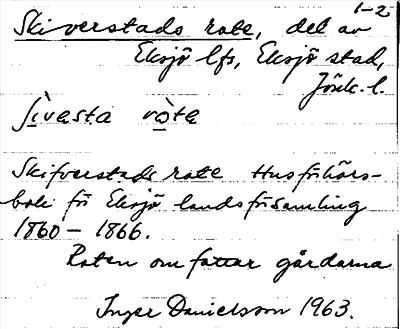 1-2
Skiverstads rote, del av
Eksjö lfs, Eksjö stad,
Jönk. l.
ʃìvesta ròte
Skifverstads rote Husförhörs-
bok fö Eksjö landsförsamling
1860-1866.
Roten omfattar gårdarna
Inger Danielsson 1963.